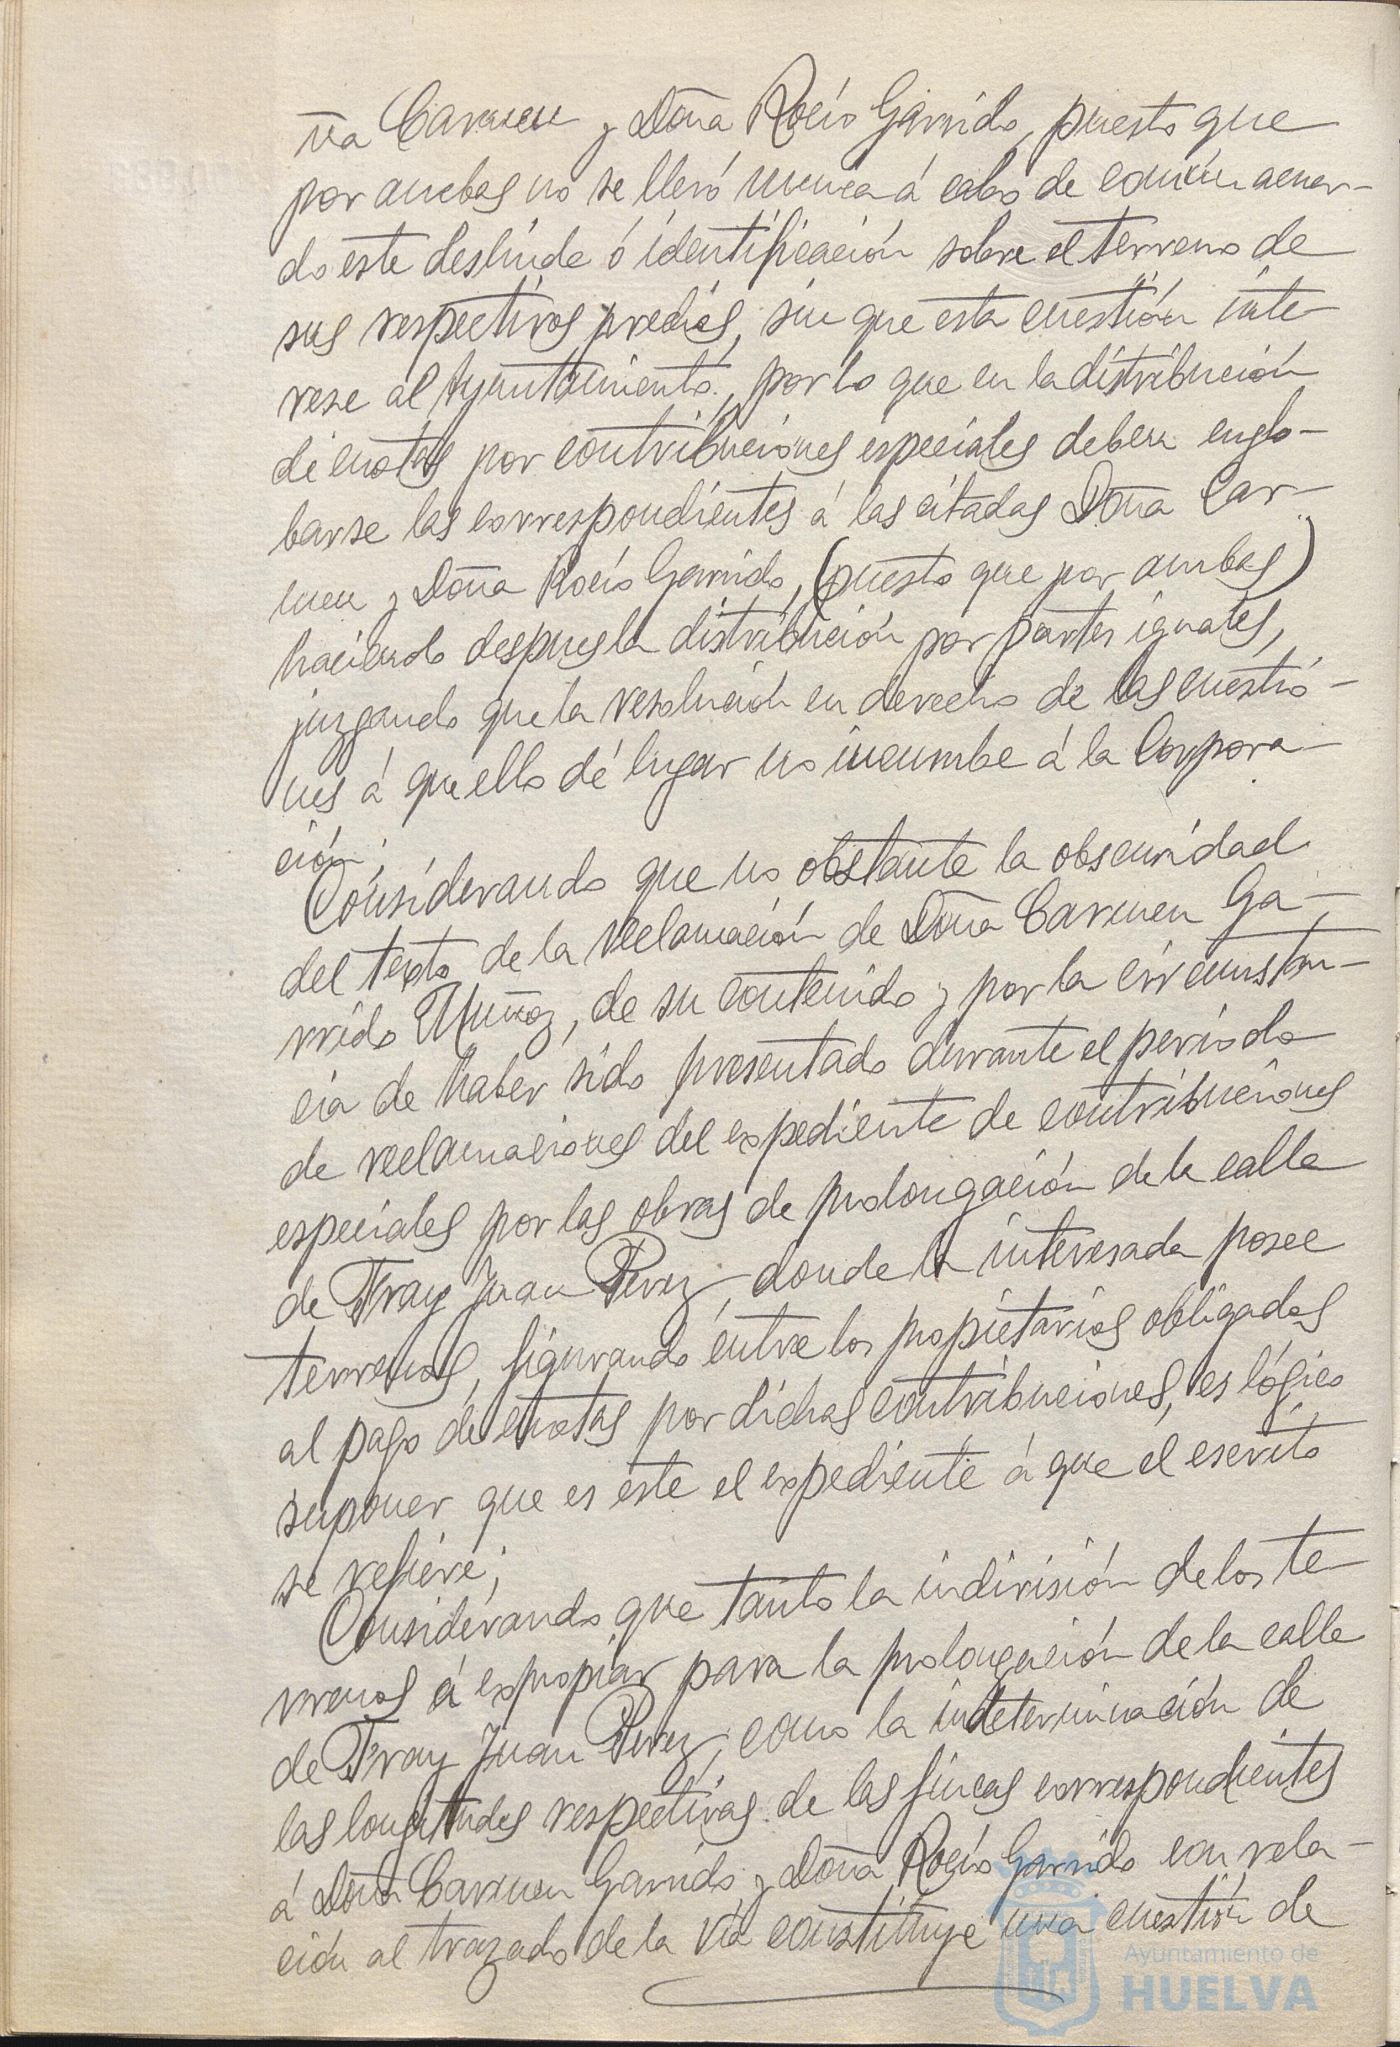 ña Carmen y Doña Rocío Garrido, puesto que
por ambas no se llevó nunca á cabo de común acuer-
do este deslinde ó identificación sobre el terreno de
sus respectivos predios, sin que esta cuestión inte-
rese al Ayuntamiento, por lo que en la distribución
de cuotas por contribuciones especiales deben englo-
barse las correspondientes á las citadas Doña Car-
men y Doña Rocío Garrido, (puesto que por ambas)
haciendo despues la distribución por partes iguales,
juzgando que la resolución en derecho de las cuestio-
nes á que ello dé lugar no incumbe á la Corpora-
ción;
Considerando que no obstante la obscuridad
del texto de la reclamación de Doña Carmen Ga-
rrido Muñoz, de su contenido y por la circunstan-
cia de haber sido presentado durante el periodo
de reclamaciones del expediente de contribuciones
especiales por las obras de prolongación de la calle
de Fray Juan Perez, donde la interesada posee
terrenos, figurando entre los propietarios obligados
al pago de cuotas por dichas contribuciones, es lógico
suponer que es este el expediente á que el escrito
se refiere;
Considerando que tanto la indivisión de los te-
rrenos á expropiar para la prolongación de la calle
de Fray Juan Perez, como la indeterminación de
las longitudes respectivas de las fincas correspondientes
á Doña Carmen Garrido y Doña Rocío Garrido con rela-
ción al trazado de la vía constituye una cuestión de
Ayuntamiento de
HUELVA